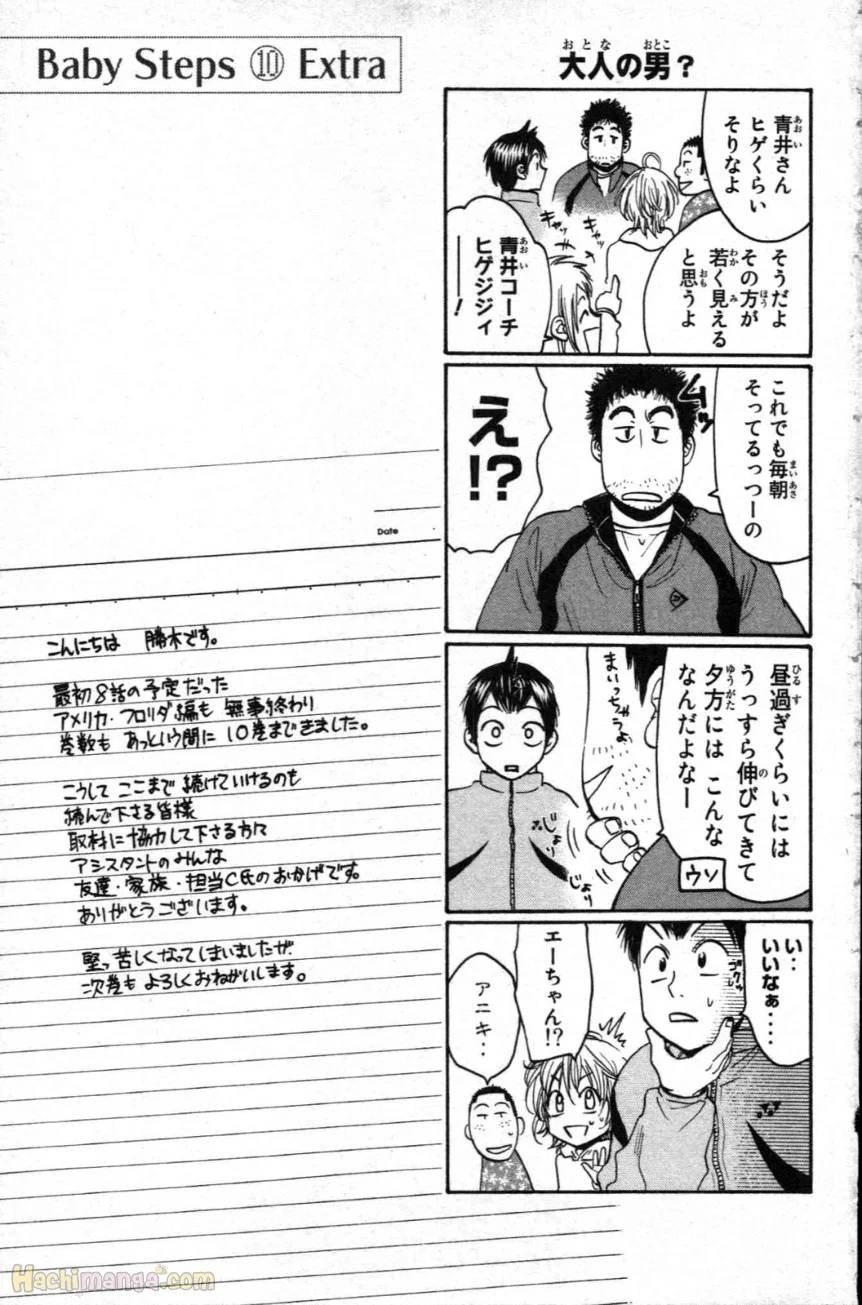 Baby Steps ⑩ Extra
大人の男?
おとな
おとこ
青井さん
あおい
ヒゲくらい
そりなよ
そうだよ
その方が
ほう
若く見える
わか
み
と思うよ
おも
キャッ
キャッ
青井コーチ
あおい
ヒゲジジィ
――!
これでも毎朝
まいあさ
そってるっつーの
ムッ
え!?
昼過ぎくらいには
ひるす
うっすら伸びてきて
の
夕方には こんな
ゆうがた
なんだよなー
ウソ
まいっちゃうよ
じょり
じょり
い‥
いいなぁ‥‥
ゴクッ
エーちゃん!?
アニキ‥
Date
こんにちは 勝木です。
最初8話の予定だった
アメリカ・フロリダ編も 無事終わり
巻数も あっという間に 10巻まできました。
こうして ここまで 続けていけるのも
読んで下さる皆様
取材に協力して下さる方々
アシスタントのみんな
友達・家族・担当C氏のおかげです。
ありがとうございます。
堅っ苦しくなってしまいましたが
次巻も よろしくおねがいします。
Hachimanga.com